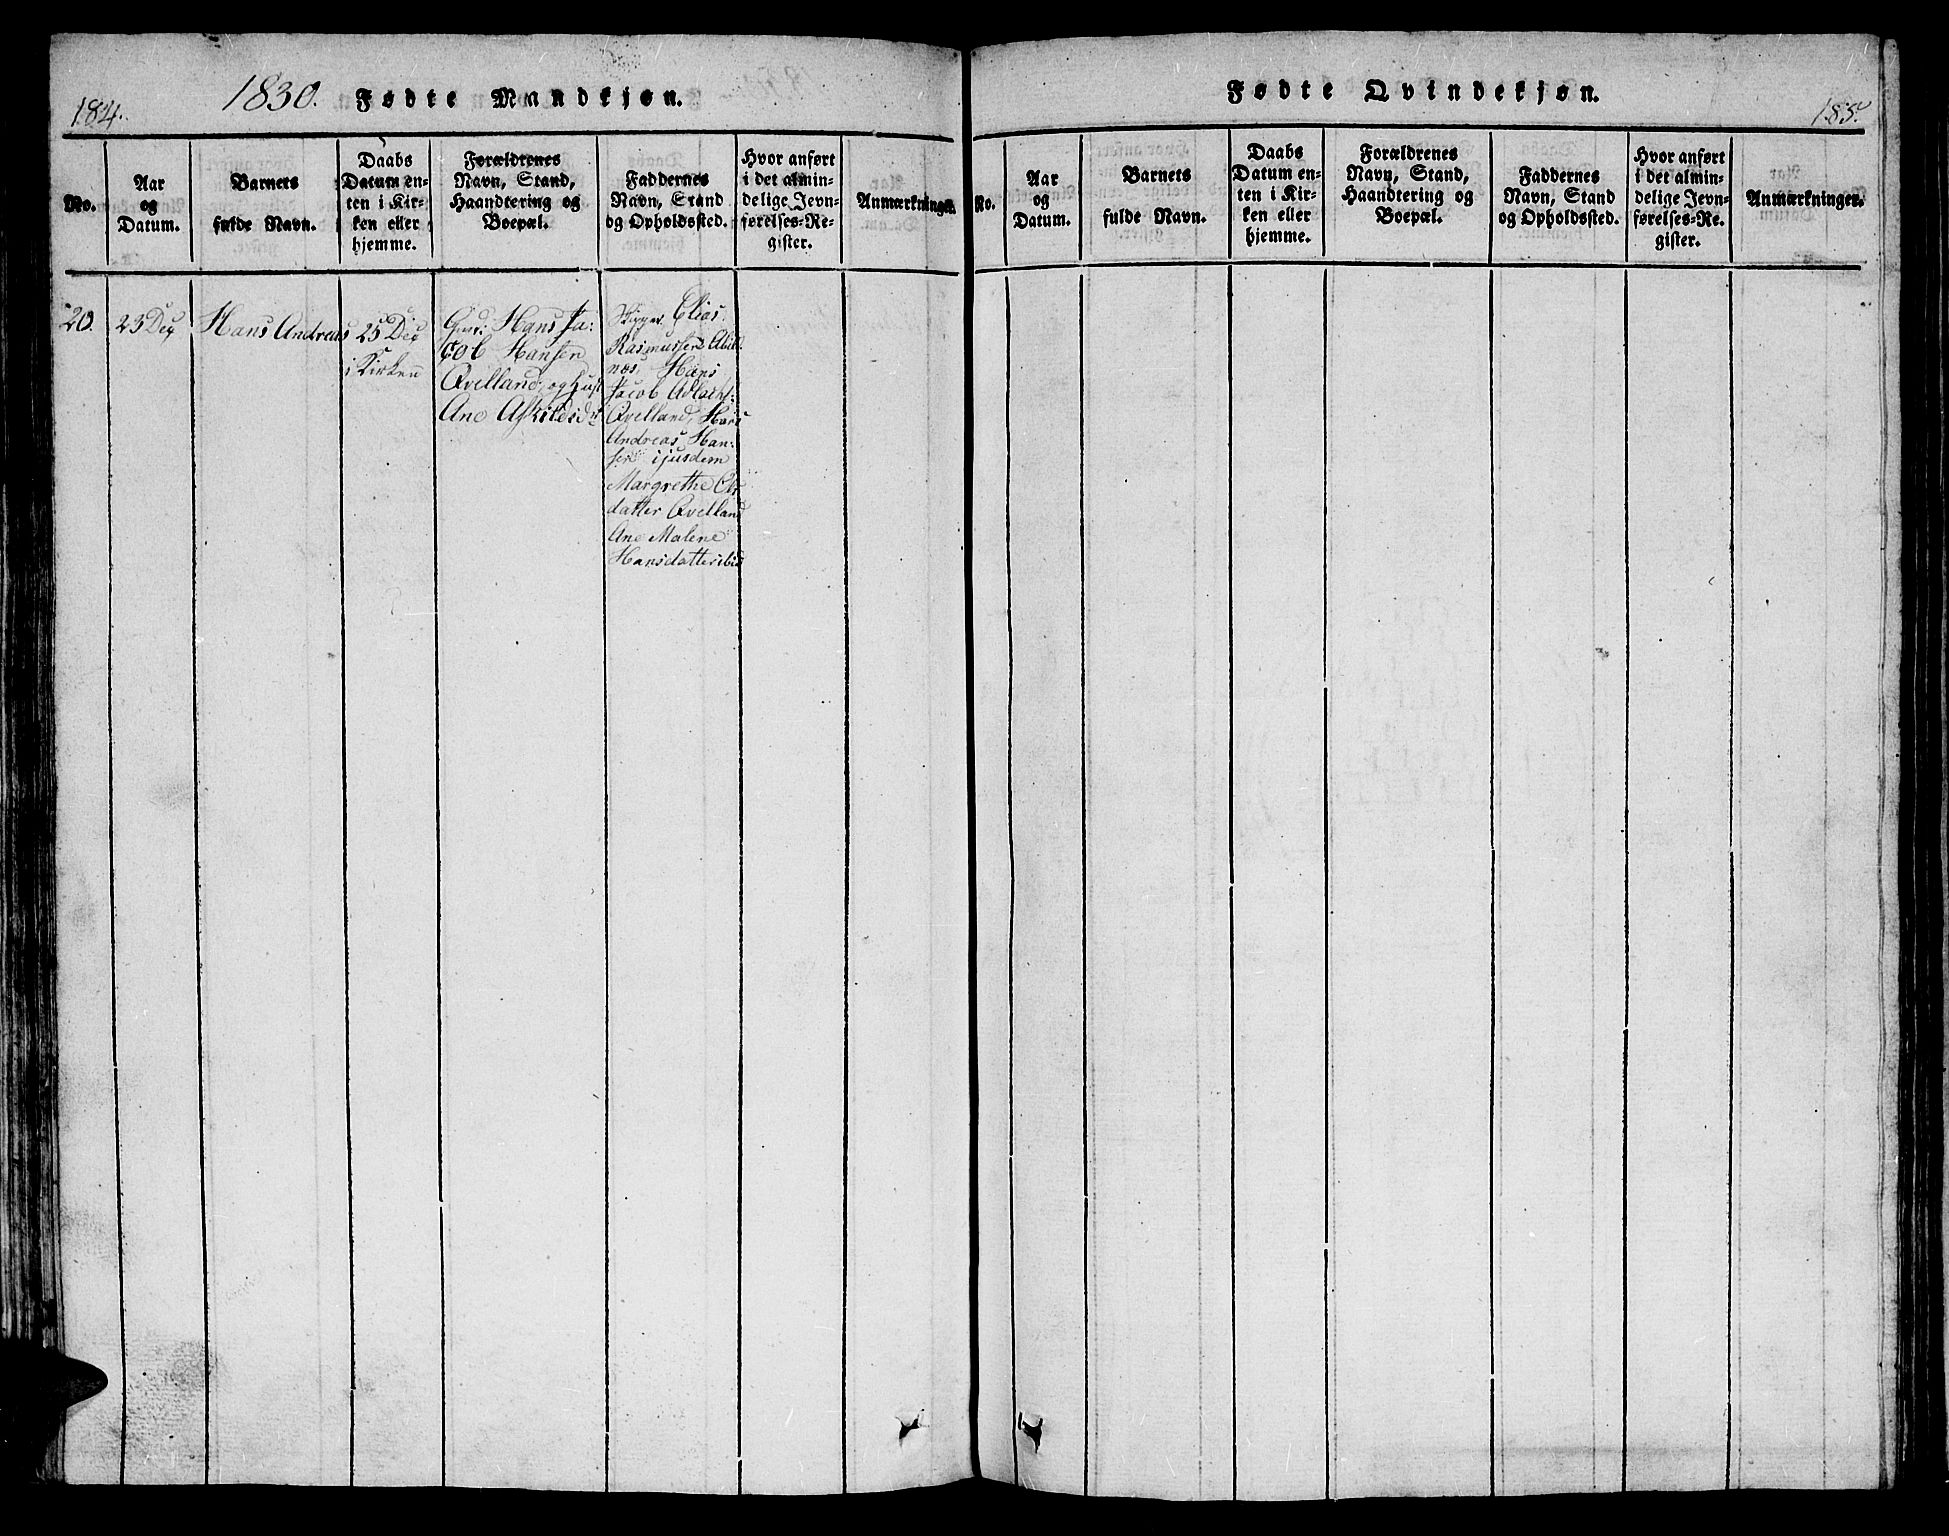 184.
1830. Fødte Mandkjøn.
No.
Aar
og
Datum.
Barnets
fulde Navn.
Daabs
Datum en-
ten i Kir-
ken eller
hjemme.
Forældrenes
Navn, Stand,
Haandtering og
Boepæl.
Faddernes
Navn, Stand
og Opholdssted.
Hvor anført
i det almin-
delige Jevn-
førelses-Re-
gister.
Anmærkninger.
20.
23 Dec
Hans Andreas
25 Dec
i Kirken
Hans Ja:
cob Hansen
Qvelland, og Hust
Ane Askildsd
Skipper Elias
Rasmussen Abil
næs, Hans
Jacob
Qvelland, Hans
Andreas Han:
sen ijusdem
Margrethe
datter Qvelland
Ane Malene
Hansdatter ibid
Fødte Qvindekjøn.
185.
No.
Aar
og
Datum.
Barnets
fulde Navn.
Daabs
Datum en-
ten i Kir-
ken eller
hjemme.
Forældrenes
Navn, Stand,
Haandtering og
Boepæl.
Faddernes
Navn, Stand
og Opholdssted.
Hvor anført
i det almin-
delige Jevn-
førelses-Re-
gister.
Anmærkninger.